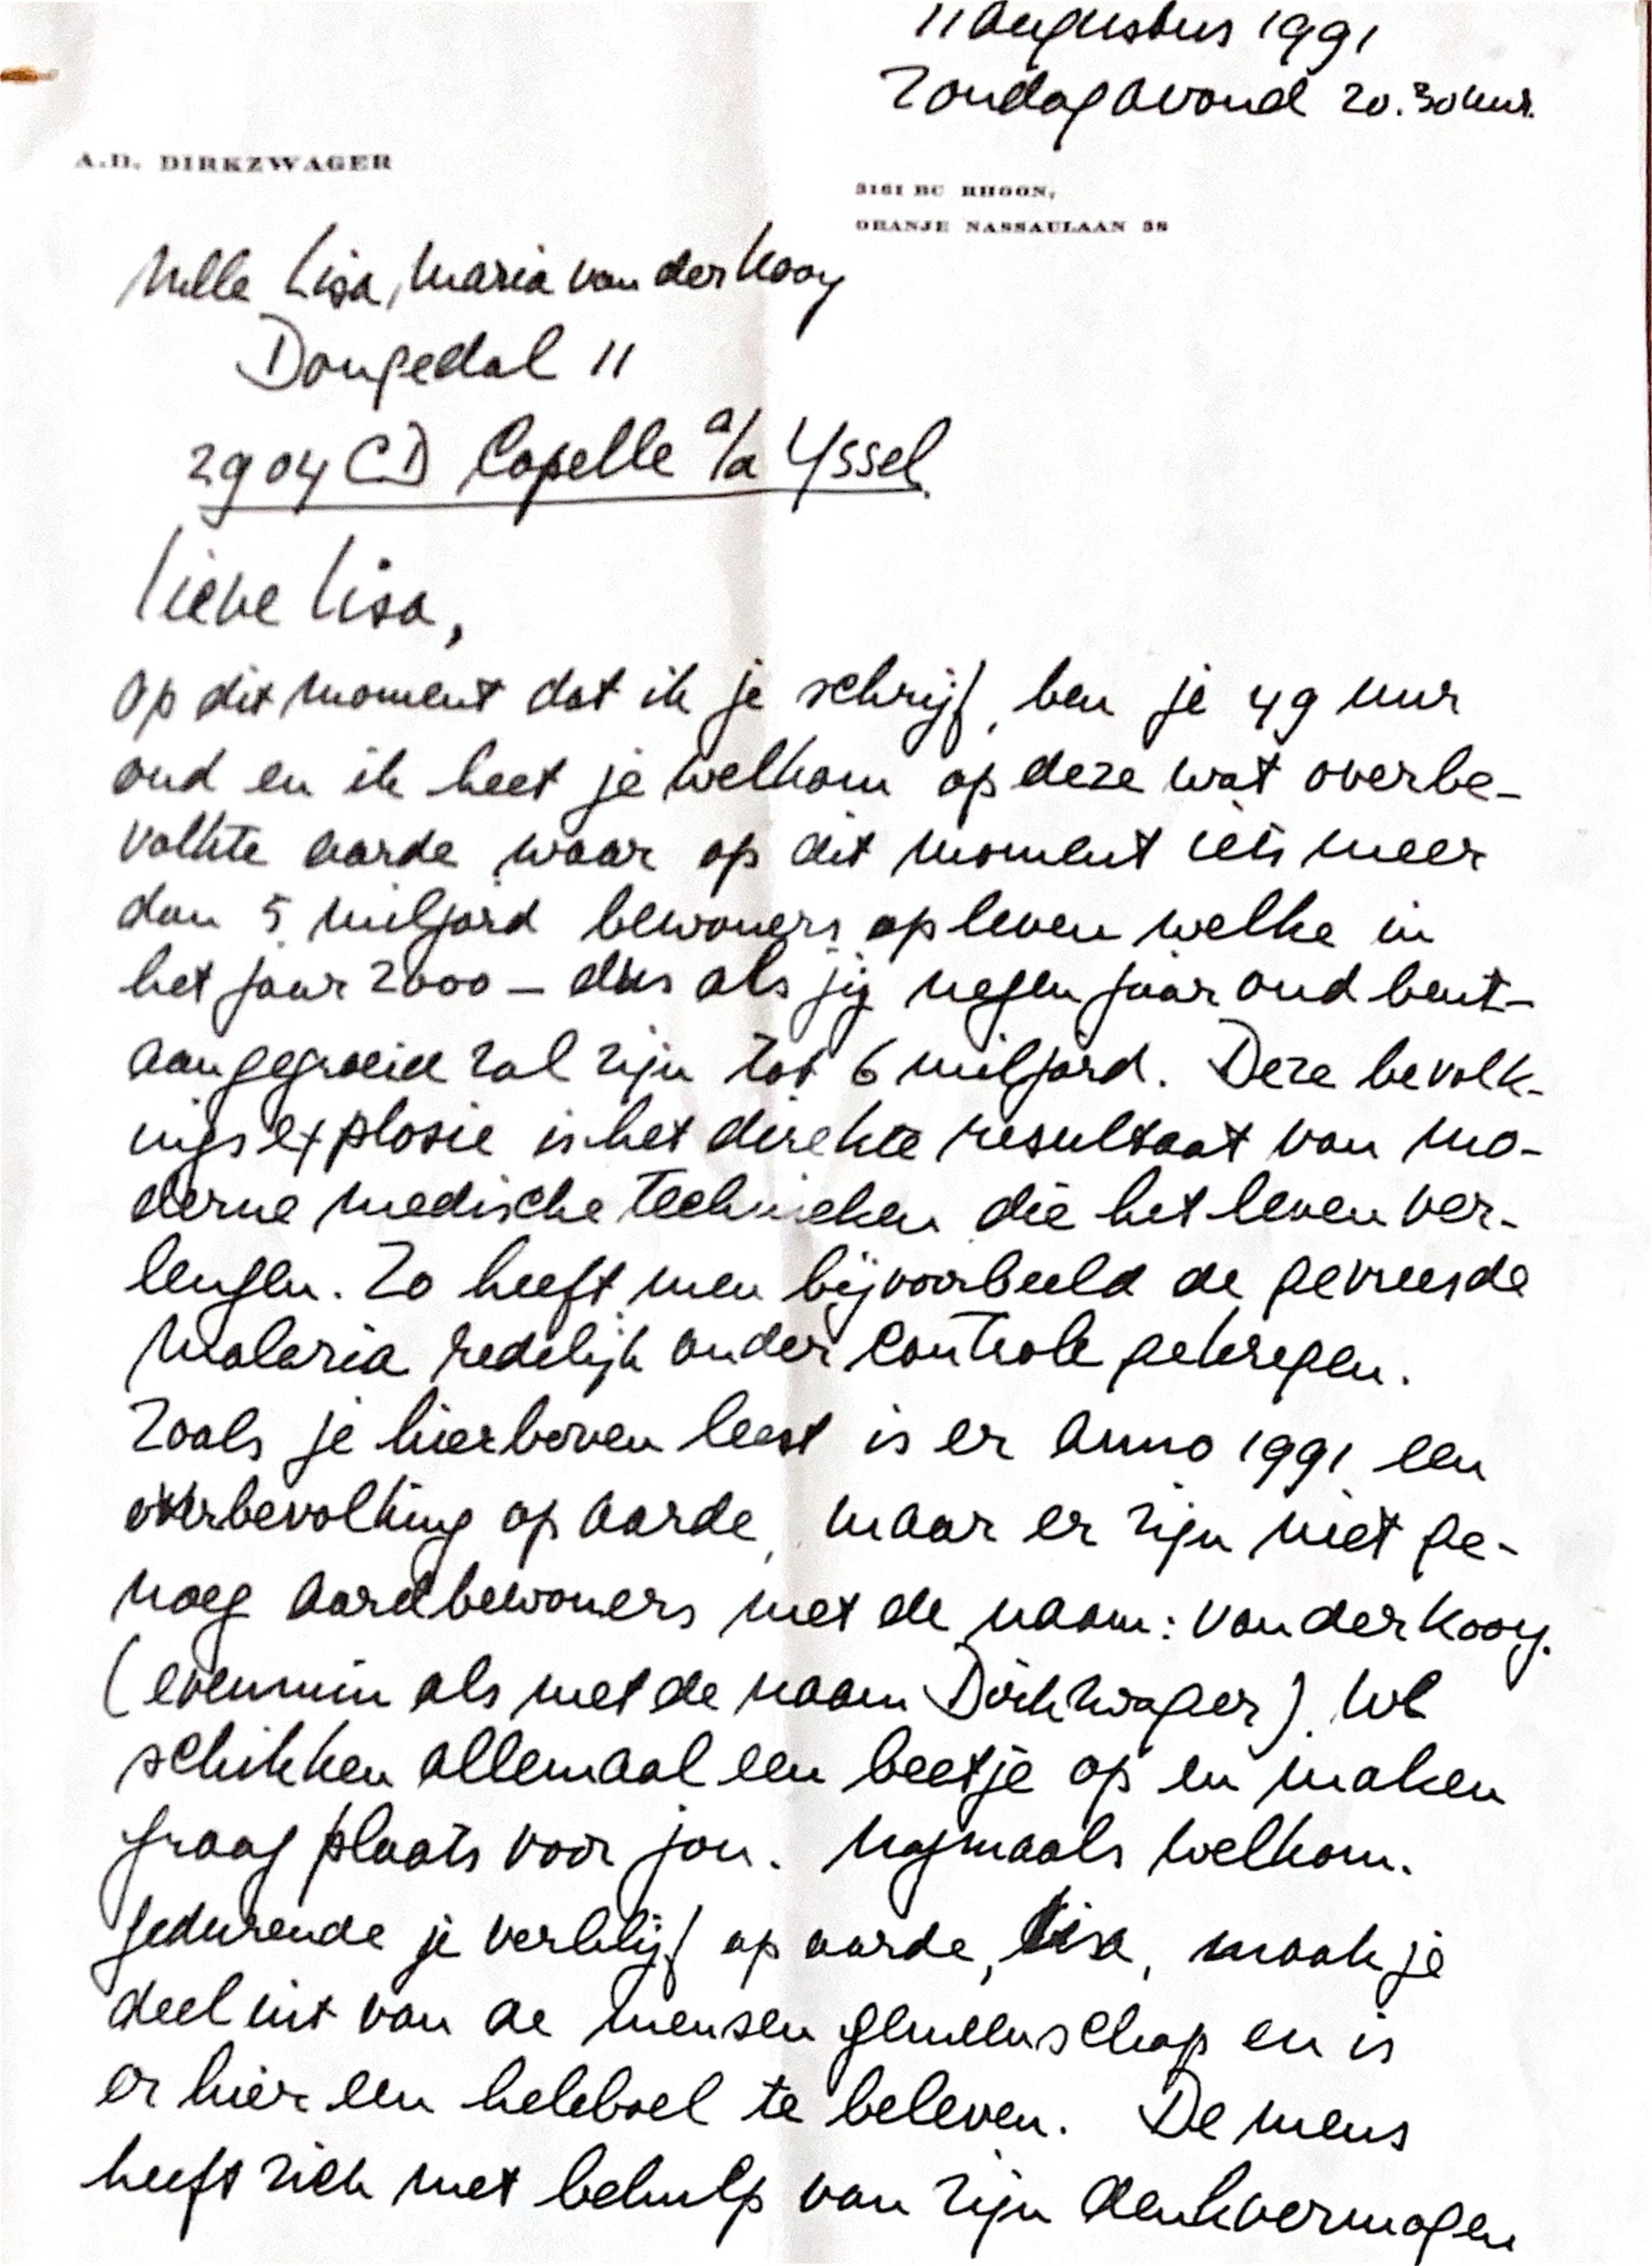 11 augustus 1991
Zondagavond 20.30 uur.
A.D. DIRKZWAGER
3161 BC RHOON,
ORANJE NASSAULAAN 38
Melle Lisa, Maria van der Kooy
Dongedal 11
2904 CD Capelle a/a Yssel
Lieve Lisa,
Op dit moment dat ik je schrijf, ben je 49 uur
oud en ik heet je welkom op deze wat overbe-
volkte aarde waar op dit moment iets meer
dan 5 miljard bewoners op leven welke in
het jaar 2000 – dus als jij negen jaar oud bent –
aangegroeid zal zijn tot 6 miljard. Deze bevolk-
ings explosie is het direkte resultaat van mo-
derne medische technieken die het leven ver-
lengen. Zo heeft men bijvoorbeeld de gevreesde
malaria redelijk onder controle gekregen.
Zoals je hierboven leest is er anno 1991 een
overbevolking op aarde, maar er zijn niet ge-
noeg aardbewoners met de naam: van der Kooy.
(evenmin als met de naam Dirkzwager). We
schikken allemaal een beetje op en maken
graag plaats voor jou. Nogmaals welkom.
Gedurende je verblijf op aarde, Lisa, maak je
deel uit van de mensen gemeenschap en is
er hier een heleboel te beleven. De mens
heeft zich met behulp van zijn denkvermogen